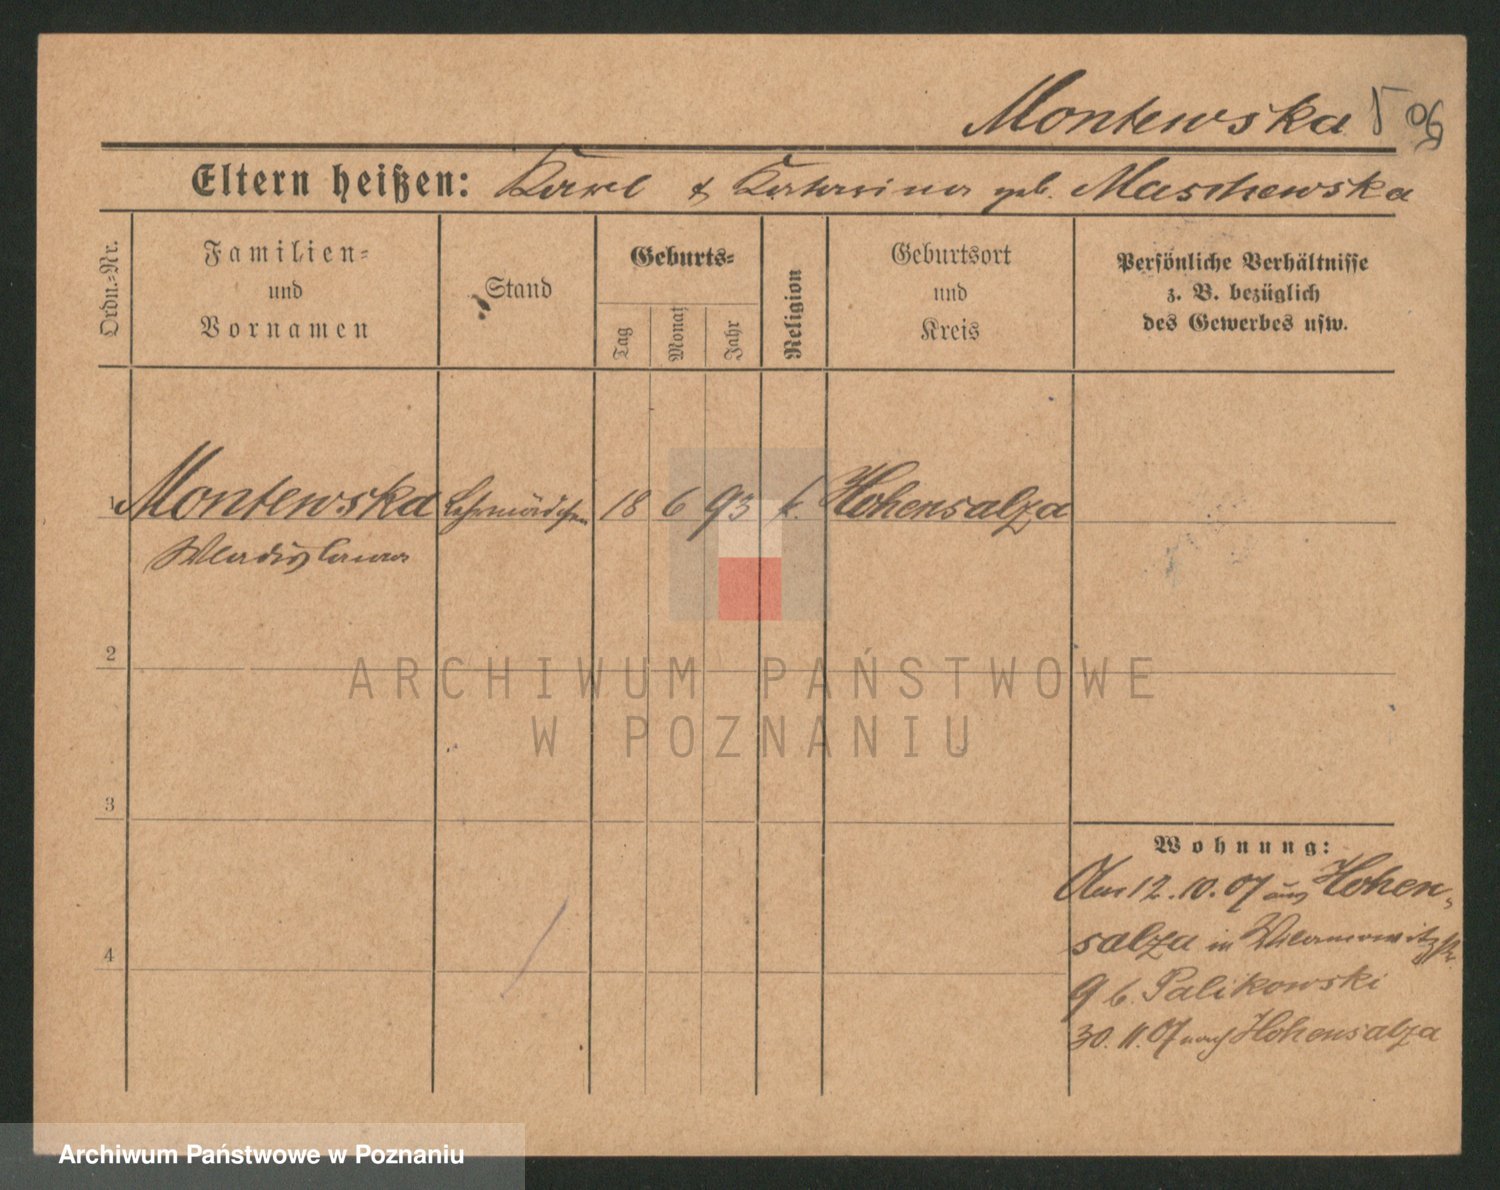 Montewska
Eltern heißen: Karl & Katharina geb. Maschewska
Ordn.-Nr.
Familien-
und
Vornamen
Stand
Geburts-
Tag
Monat
Jahr
Religion
Geburtsort
und
Kreis
Persönliche Verhältnisse
z. B. bezüglich
des Gewerbes usw.
1 Montewska Lehrmädchen 18 6 93 k. Hohensalza
Wladislawa
2
3
4
Wohnung:
Am 12.10.07 aus Hohen-
salza in Wilamowitzstr.
9 b. Palikowski
30.11.07 nach Hohensalza
ARCHIWUM PAŃSTWOWE
W POZNANIU
Archiwum Państwowe w Poznaniu